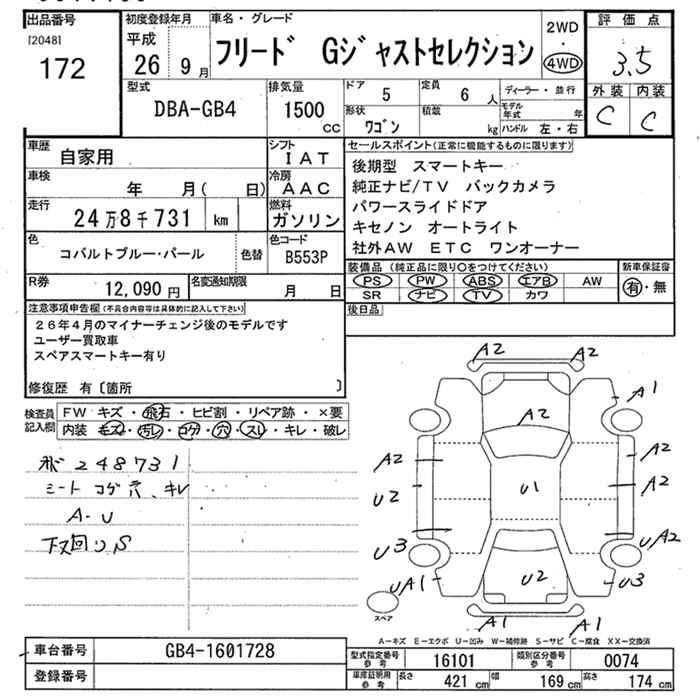 出品番号
[2048]
172
初度登録年月
平成
26 9月
車名・グレード
フリード Gジャストセレクション
2WD
・
4WD
評価点
3.5
外装 内装
C C
型式
DBA-GB4
排気量
1500
CC
ドア 5
定員 6人
形状 ワゴン
積載 kg
ディーラー・並行
モデル年式 年
ハンドル 左・右
車歴 自家用
シフト IAT
車検 年 月( 日)
冷房 AAC
走行 24万8千731 km
燃料 ガソリン
色 コバルトブルー・パール
色替
色コード B553P
R券 12,090円
名変通知期限 月 日
セールスポイント(正常に機能するものに限ります)
後期型 スマートキー
純正ナビ/TV バックカメラ
パワースライドドア
キセノン オートライト
社外AW ETC ワンオーナー
装備品 (純正品に限り○をつけてください)
PS PW ABS エアB AW
SR ナビ TV カワ
新車保証書
有・無
後日品
注意事項申告欄(不具合内容等は具体的に記入して下さい)
26年4月のマイナーチェンジ後のモデルです
ユーザー買取車
スペアスマートキー有り
修復歴 有〔箇所 〕
検査員記入欄
FW キズ・飛石・ヒビ割・リペア跡・×要
内装 キズ・汚レ・コゲ・穴・スレ・キレ・破レ
248731
シート コゲ穴、キレ
A-U
下廻りS
A2 A2
A1
A2
A2
A2
U2
U1
U3
UA2
UA1
U2
U3
A1 A1
スペア
A-キズ E-エクボ U-凹み W-補修跡 S-サビ C-腐食 XX-交換済
車台番号 GB4-1601728
登録番号
型式指定番号 参考 16101
類別区分番号 参考 0074
車庫証明用 参考
長さ 421 cm
幅 169 cm
高さ 174 cm